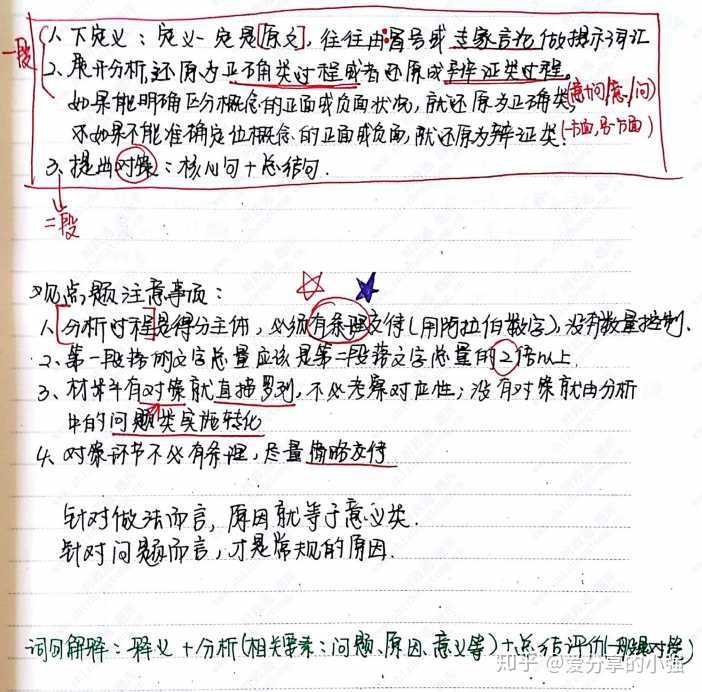 一段
1、下定义：定义一定是[原文]，往往由冒号或专家言论做提示词汇
2、展开分析，还原为正确类过程或者还原成辩证类过程。
如果能明确区分概念的正面或负面状况，就还原为正确类，(意+问/意/问)
不如果不能准确定位概念的正面或负面，就还原为辩证类。(一方面，另一方面)
3、提出对策：核心句+总结句.
二段
观点题注意事项：
1、分析过程是得分主体，必须有条理交待(用阿拉伯数字)，没有数量控制.
2、第一段落的文字总量应该是第二段落文字总量的2倍以上.
3、材料中有对策就直接罗列，不必考察对应性；没有对策就由分析
中的问题类实施转化
4、对策环节不必有条理，尽量简略交待
针对做法而言，原因就等于意义类.
针对问题而言，才是常规的原因.
词句解释：释义+分析(相关要素：问题、原因、意义等)+总结评价(一般是对策)
知乎 @爱分享的小强